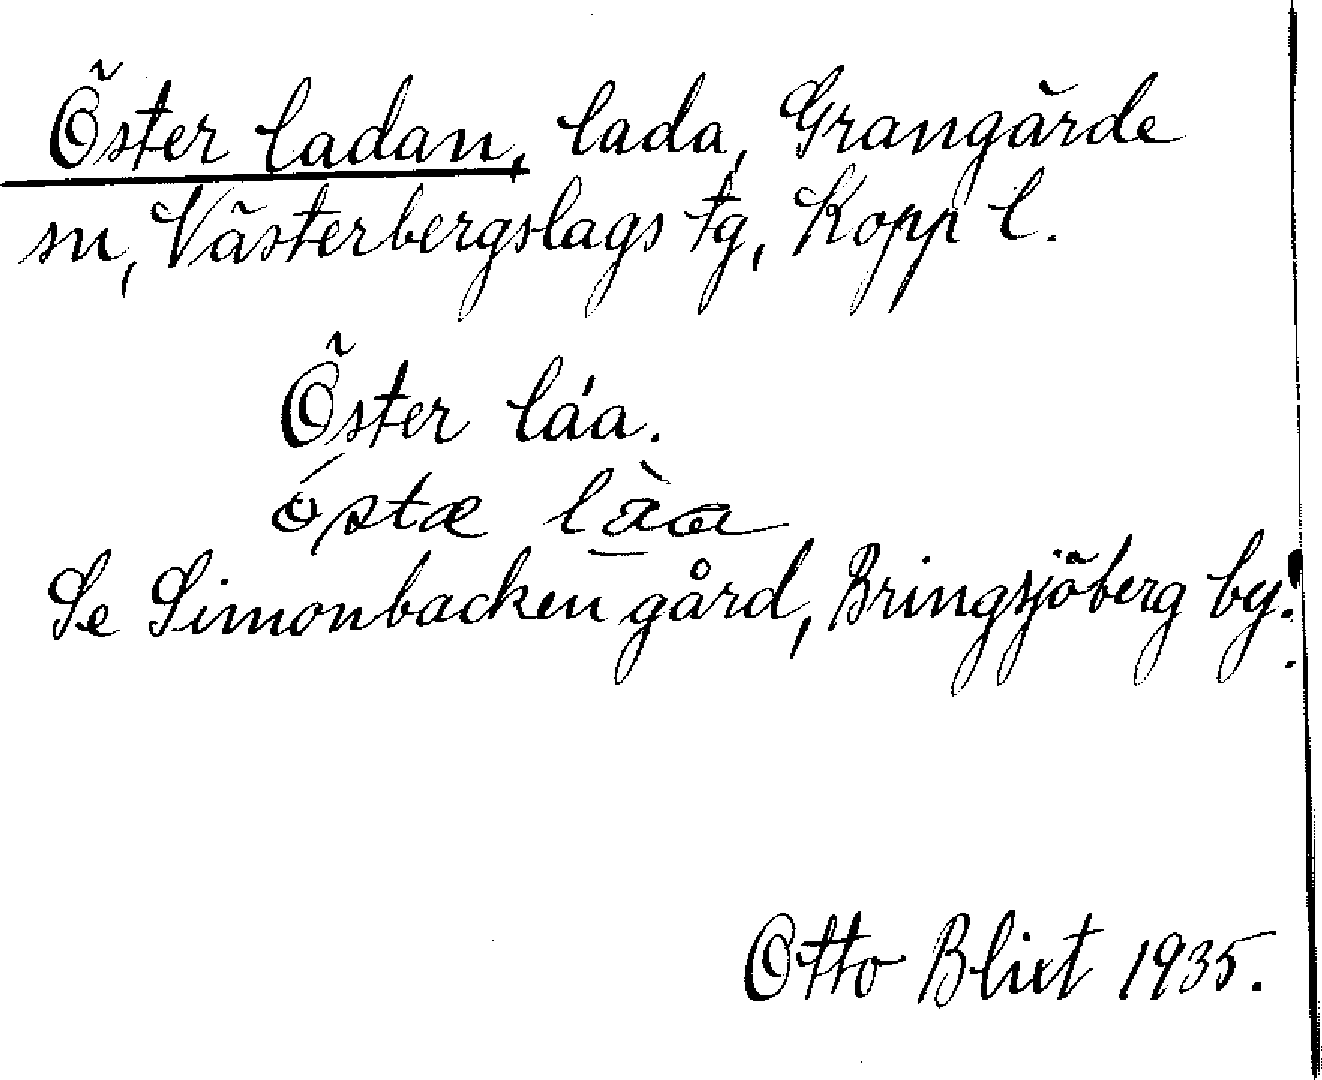 Öster ladan, lada, Grangärde
sn, Västerbergslags tg, Kopp l.
Öster láa.
östæ làa
Se Simonbacken gård, Bringsjöberg by.
Otto Blixt 1935.